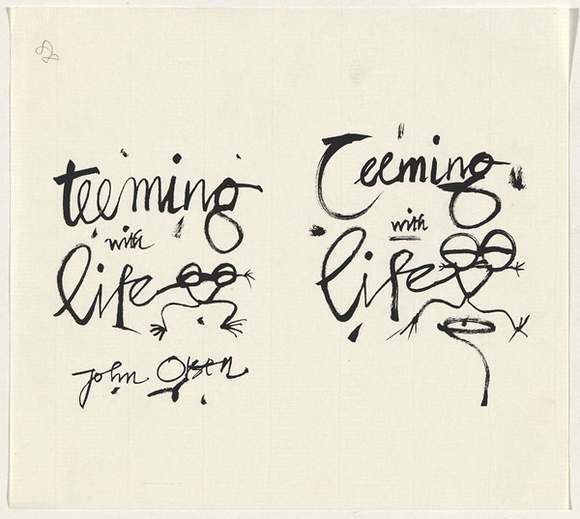 teeming
with
life
John Olsen
Teeming
with
life